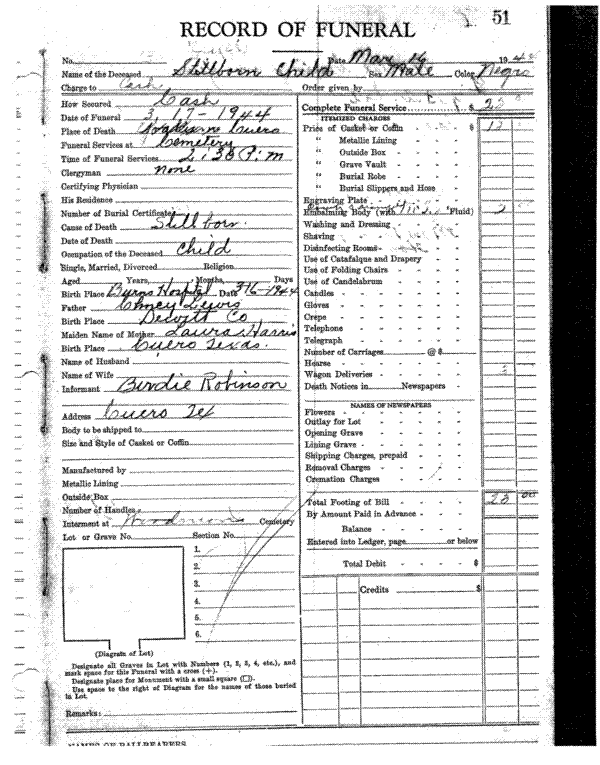 51
RECORD OF FUNERAL
No. Date Mar 16 194
Name of the Deceased Stillborn Child Sex Male Color Negro
Charge to Cash Order given by
How Secured Cash
Date of Funeral 3-17-1944
Place of Death Cuero
Funeral Services at Cemetery
Time of Funeral Services 2:30 P.m
Clergyman none
Certifying Physician
His Residence
Number of Burial Certificate
Cause of Death Stillborn
Date of Death
Occupation of the Deceased Child
Single, Married, Divorced Religion
Aged Years, Months, Days
Birth Place Burns Hospital Date 3-16-1944
Father Lewis
Birth Place Dewitt Co
Maiden Name of Mother Laura Harris
Birth Place Cuero Texas.
Name of Husband
Name of Wife
Informant Birdie Robinson
Address Cuero Tex
Body to be shipped to
Size and Style of Casket or Coffin
Manufactured by
Metallic Lining
Outside Box
Number of Handles
Interment at Woodmen Cemetery
Lot or Grave No. Section No.
1.
2.
3.
4.
5.
6.
(Diagram of Lot)
Designate all Graves in Lot with Numbers (1, 2, 3, 4, etc.), and
mark space for this Funeral with a cross (+).
Designate place for Monument with a small square (□).
Use space to the right of Diagram for the names of those buried
in Lot.
Remarks:
NAMES OF PALLBEARERS
Complete Funeral Service $
ITEMIZED CHARGES
Price of Casket or Coffin $
" Metallic Lining
" Outside Box
" Grave Vault
" Burial Robe
" Burial Slippers and Hose
Engraving Plate
Embalming Body (with Fluid)
Washing and Dressing
Shaving
Disinfecting Rooms
Use of Catafalque and Drapery
Use of Folding Chairs
Use of Candelabrum
Candles
Gloves
Crepe
Telephone
Telegraph
Number of Carriages @ $
Hearse
Wagon Deliveries
Death Notices in Newspapers
NAMES OF NEWSPAPERS
Flowers
Outlay for Lot
Opening Grave
Lining Grave
Shipping Charges, prepaid
Removal Charges
Cremation Charges
Total Footing of Bill 00
By Amount Paid in Advance
Balance
Entered into Ledger, page or below
Total Debit $
Credits $